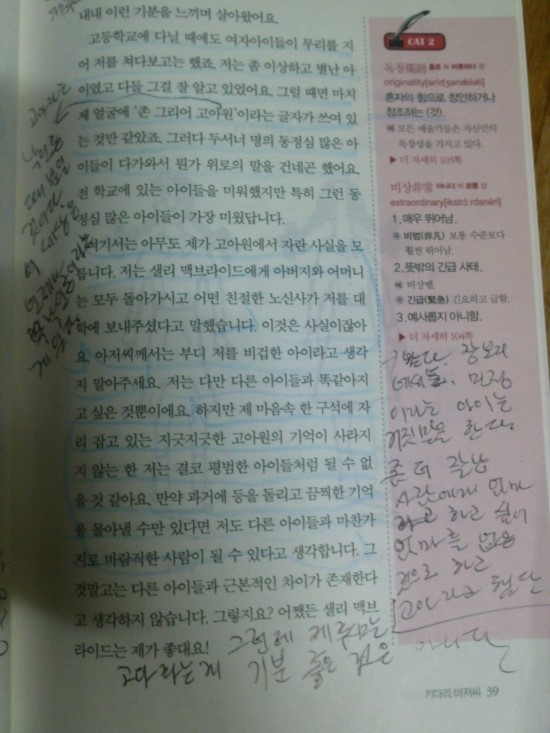 내내 이런 기분을 느끼며 살아왔어요.
고등학교에 다닐 때에도 여자아이들이 무리를 지
어 저를 쳐다보고는 했죠. 저는 좀 이상하고 별난 아
이였고 다들 그걸 잘 알고 있었어요. 그럴 때면 마치
제 얼굴에 '존 그리어 고아원'이라는 글자가 쓰여 있
는 것만 같았죠. 그러다 두서너 명의 동정심 많은 아
이들이 다가와서 뭔가 위로의 말을 건네곤 했어요.
전 학교에 있는 아이들을 미워했지만 특히 그런 동
정심 많은 아이들이 가장 미웠답니다.
여기서는 아무도 제가 고아원에서 자란 사실을 모
릅니다. 저는 샐리 맥브라이드에게 아버지와 어머니
는 모두 돌아가시고 어떤 친절한 노신사가 저를 대
학에 보내주셨다고 말했습니다. 이것은 사실이잖아
요. 아저씨께서는 부디 저를 비겁한 아이라고 생각
지 말아주세요. 저는 다만 다른 아이들과 똑같아지
고 싶은 것뿐이에요. 하지만 제 마음속 한 구석에 자
리 잡고 있는 지긋지긋한 고아원의 기억이 사라지
지 않는 한 저는 결코 평범한 아이들처럼 될 수 없
을 것 같아요. 만약 과거에 등을 돌리고 끔찍한 기억
을 몰아낼 수만 있다면 저도 다른 아이들과 마찬가
지로 바람직한 사람이 될 수 있다고 생각합니다. 그
것말고는 다른 아이들과 근본적인 차이가 존재한다
고 생각하지 않습니다. 그렇지요? 어쨌든 샐리 맥브
라이드는 제가 좋대요!
CAT 2
독창獨創
originality
혼자의 힘으로 창안하거나
창조하는 (것).
예 모든 예술가들은 자신만의
독창성을 가지고 있다.
▶ 더 자세히 103쪽
비상非常
extraordinary
1. 매우 뛰어남.
비범(非凡) 보통 수준보다
훨씬 뛰어남.
2. 뜻밖의 긴급 사태.
예 비상벨.
긴급(緊急) 긴요하고 급함.
3. 예사롭지 아니함.
▶ 더 자세히 104쪽
이라는 아이는
거짓말을 한다
좀 더 잘난
사람에게 엄마
라고 하고 싶어
엄마를 없는
것으로 하고
그런데 제루샤는
고아라는게 기분 좋은 것은 아니다
키다리 아저씨 39